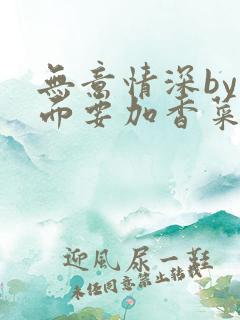 無意情深by
而要加香菜
迎風尿一鞋
未任同意禁止转载